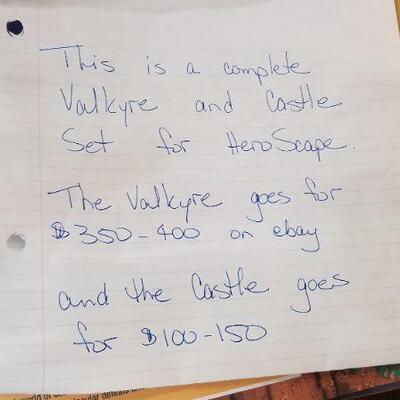 This is a complete
Valkyre and Castle
Set for HeroScape.
The Valkyre goes for
$350-400 on ebay
and the Castle goes
for $100-150
world of
defeats